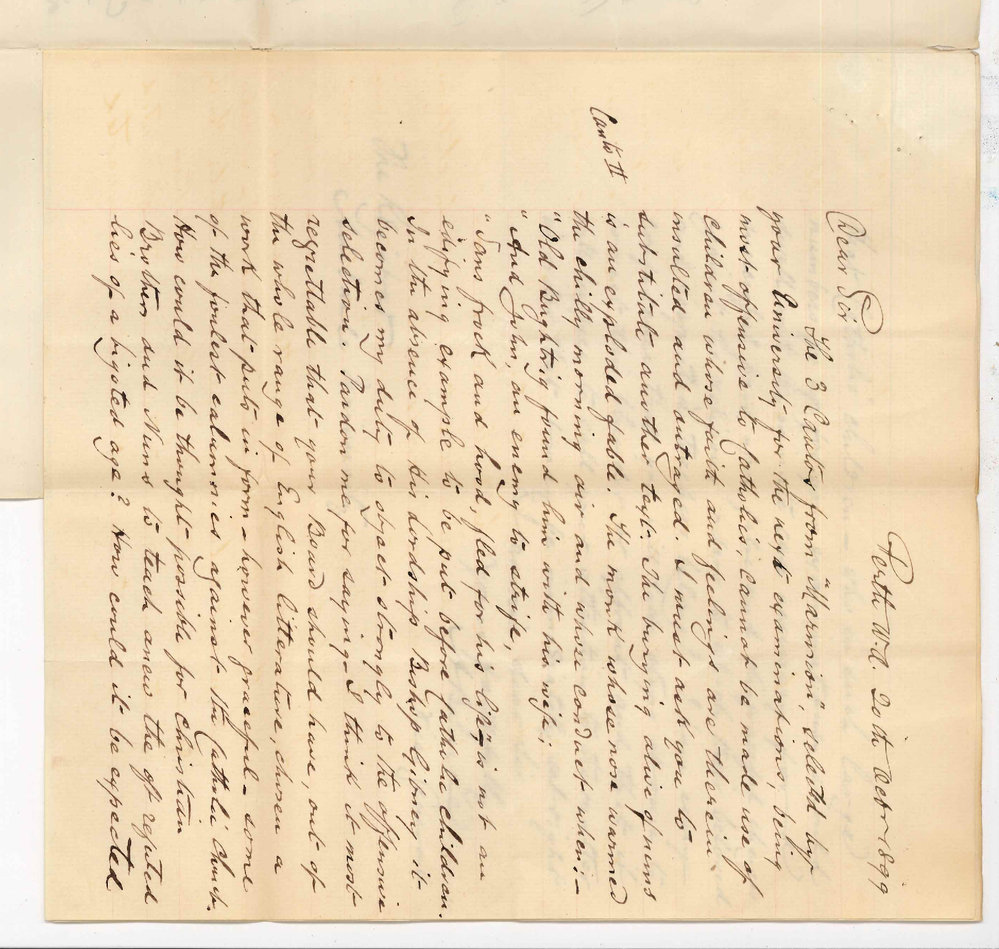 Perth W.A. 20th Octbr 1899
Dear Sir
The 3 Cantos from "Marmion", seleoth by
your University for the next examinations, being
most offensive to Catholics, cannot be made use of
children whose faith and feelings are therein
insulted and outraged. I must ask you to
substitute another text. The burying alive of nuns
is an exploded fable. The monk whose nose warmed
the chilly morning air and whose conduct when:-
Canto II
"Old Bughtrig found him with his wife;
"And John, an enemy to strife,
"Sans frock and hood, fled for his life" is not an
edifying example to be put before Catholic children.
In the absence of His Lordship Bishop Gibney it
becomes my duty to object strongly to the offensive
selection. Pardon me for saying I think it most
regrettable that your Board should have, out of
the whole range of English litterature, chosen a
work that puts in form - however graceful - some
of the foulest calumnies against the Catholic Church.
How could it be thought possible for Christian
Brothers and Nuns to teach anew the oft refuted
lies of a bigoted age? How could it be expected